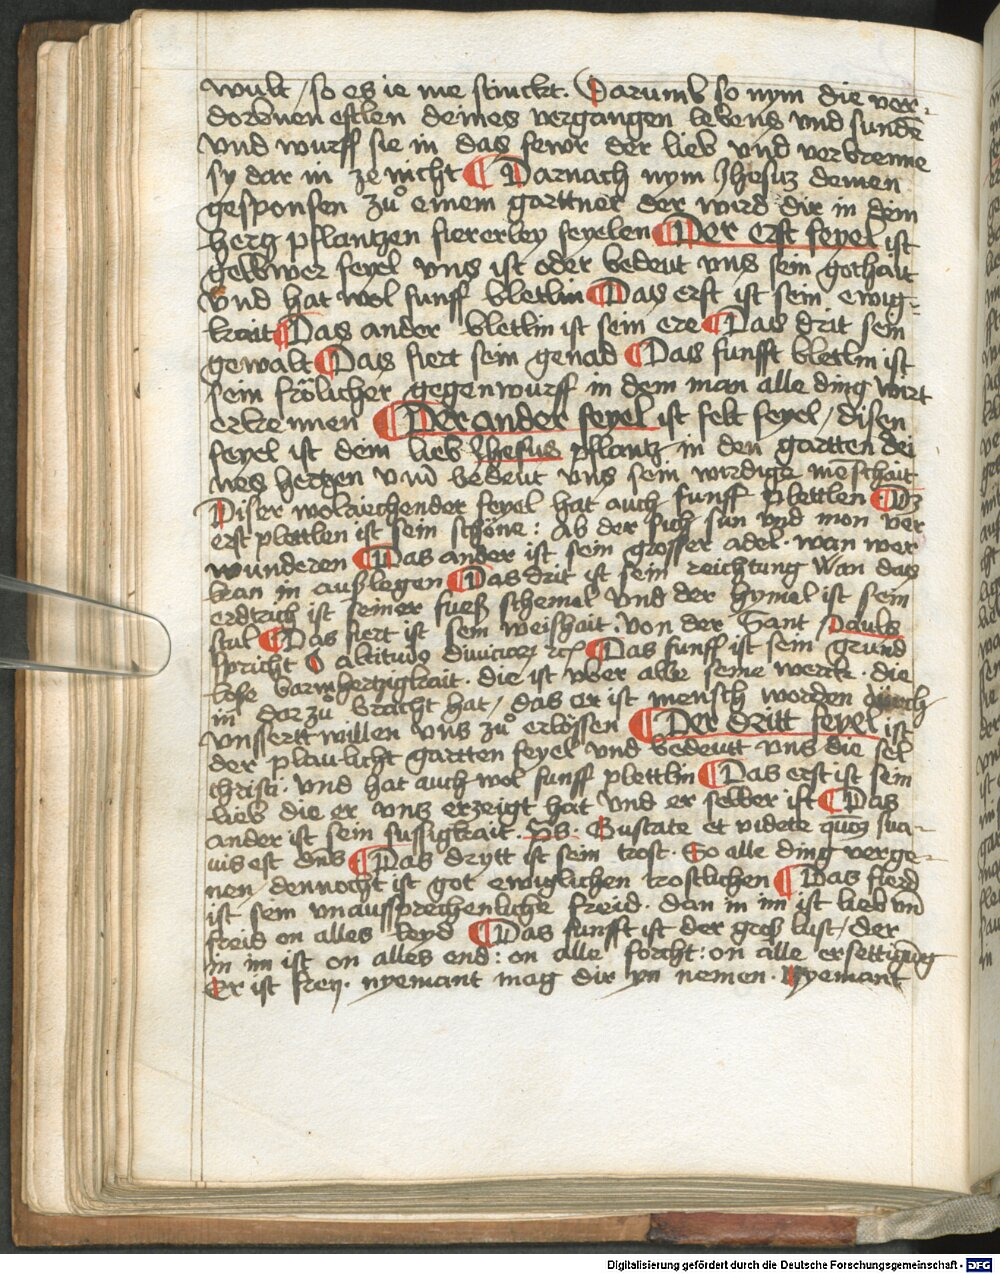 wult / so es ie me stinckt. Darumb so nym die ver-
dorbnen estlen deines vergangen lebens vnd sunde
vnd wurff sie in das fewr der lieb vnd verbrenne
sy dar in ze nicht ¶ Darnach nym Jhesuz deinen
gesponsen zuͦ einem garttner der wird dir in dein
hertz pflantzen fiererley feyelen ¶ Der erst feyel ist
gelbwer feyel vns ist oder bedeut vns sein gothait
vnd hat wol funff bletlin ¶ Das erst ist sein ewig-
kait ¶ Das ander bletlin ist sein ere ¶ Das drit sein
gewalt ¶ Das fiert sein genad ¶ Das funfft bletlin ist
sein frölicher gegenwurff in dem man alle ding wirt
erkennen ¶ Der ander feyel ist felt feyel / disen
feyel ist dein lieb Jhesus pflantz in den gartten dei
nes hertzen vnd bedeut vns sein wirdige meschait
Diser wolriechender feyel hat auch funff plettlen ¶ Dz
erst plettlen ist sein schöne : Ab der sich sun vnd mon ver
wunderen ¶ Das ander ist sein grosser adel. wan wer
kan in auslegen ¶ Das drit ist sein reichtung Wan das
erdtrich ist seiner fueß schemel vnd der hymel ist sein
stul ¶ Das fiert ist sein weishait. von der Sant Pauls
spricht O altitudo diuiciarum etc ¶ Das funff ist sein grund
lose barmhertzigkait. die ist vber alle seine werck. die
in dar zuͦ bracht hat / das er ist mensch worden durch
vnssertt willen vns zuͦ erlössen ¶ Der dritt feyel ist
der plaulicht gartten feyel vnd bedeutt vns die sel
christi. vnd hat auch wol funff plettlin ¶ Das erst ist sein
lieb die er vns erzeigt hat vnd er selber ist ¶ Das
ander ist sein sussigkait. Gustate et videte quoniam sua-
uis est dns ¶ Das drytt ist sein trost. So alle ding verge-
nen / dennocht ist got ewiglichen trostlichen ¶ Das fierd
ist sein vnaussprechenliche freid. dan in im ist lieb vnd
freid on alles leyd ¶ Das funfft ist der groß lust / der
in im ist on alles end : on alle forcht : on alle ersettigung
Er ist frey. nyemant mag dir yn nemen. Nyemant
Digitalisierung gefördert durch die Deutsche Forschungsgemeinschaft - DFG